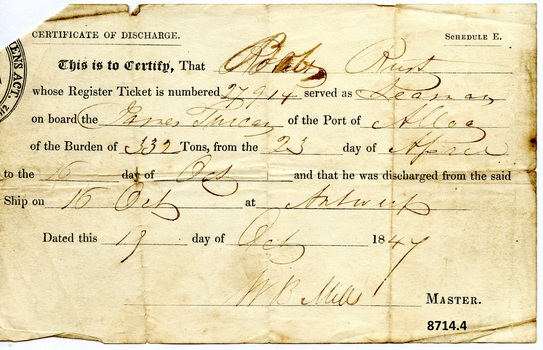 ENS ACT.
CERTIFICATE OF DISCHARGE. SCHEDULE E.
This is to Certify, That Robt Rust
whose Register Ticket is numbered 27,914 served as Seaman
on board the James Duncan of the Port of Alloa
of the Burden of 332 Tons, from the 23 day of April
to the 16 day of Oct and that he was discharged from the said
Ship on 16 Oct at Antwerp
Dated this 19 day of Oct 1847
W R Mills MASTER.
8714.4